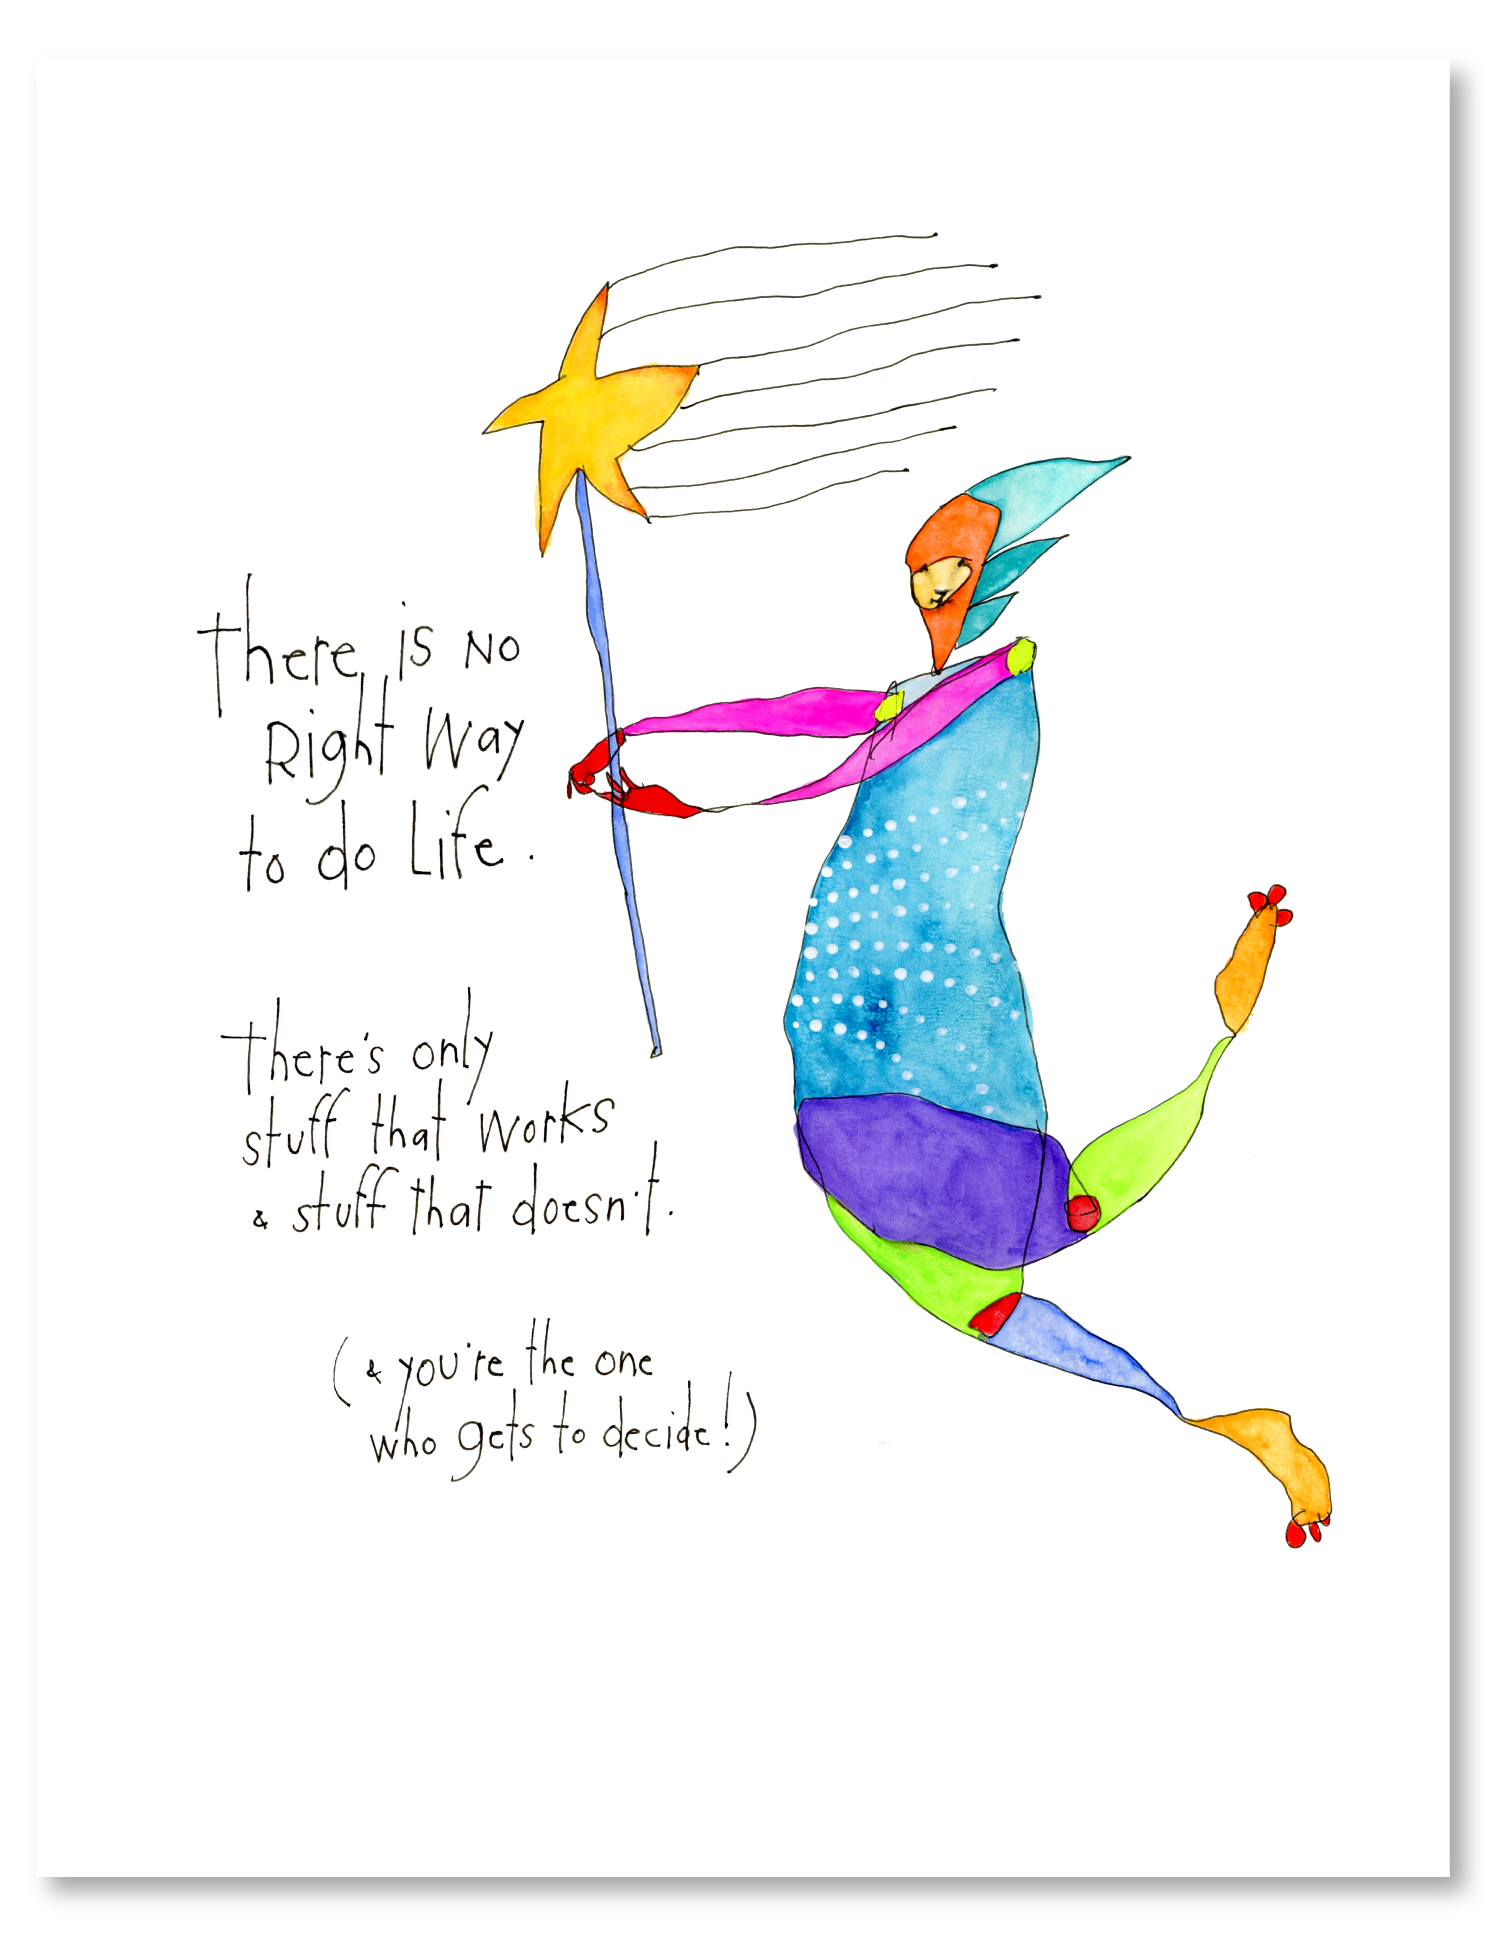 there is no
Right way
to do Life.
there's only
stuff that works
& stuff that doesn't.
(& you're the one
who gets to decide!)